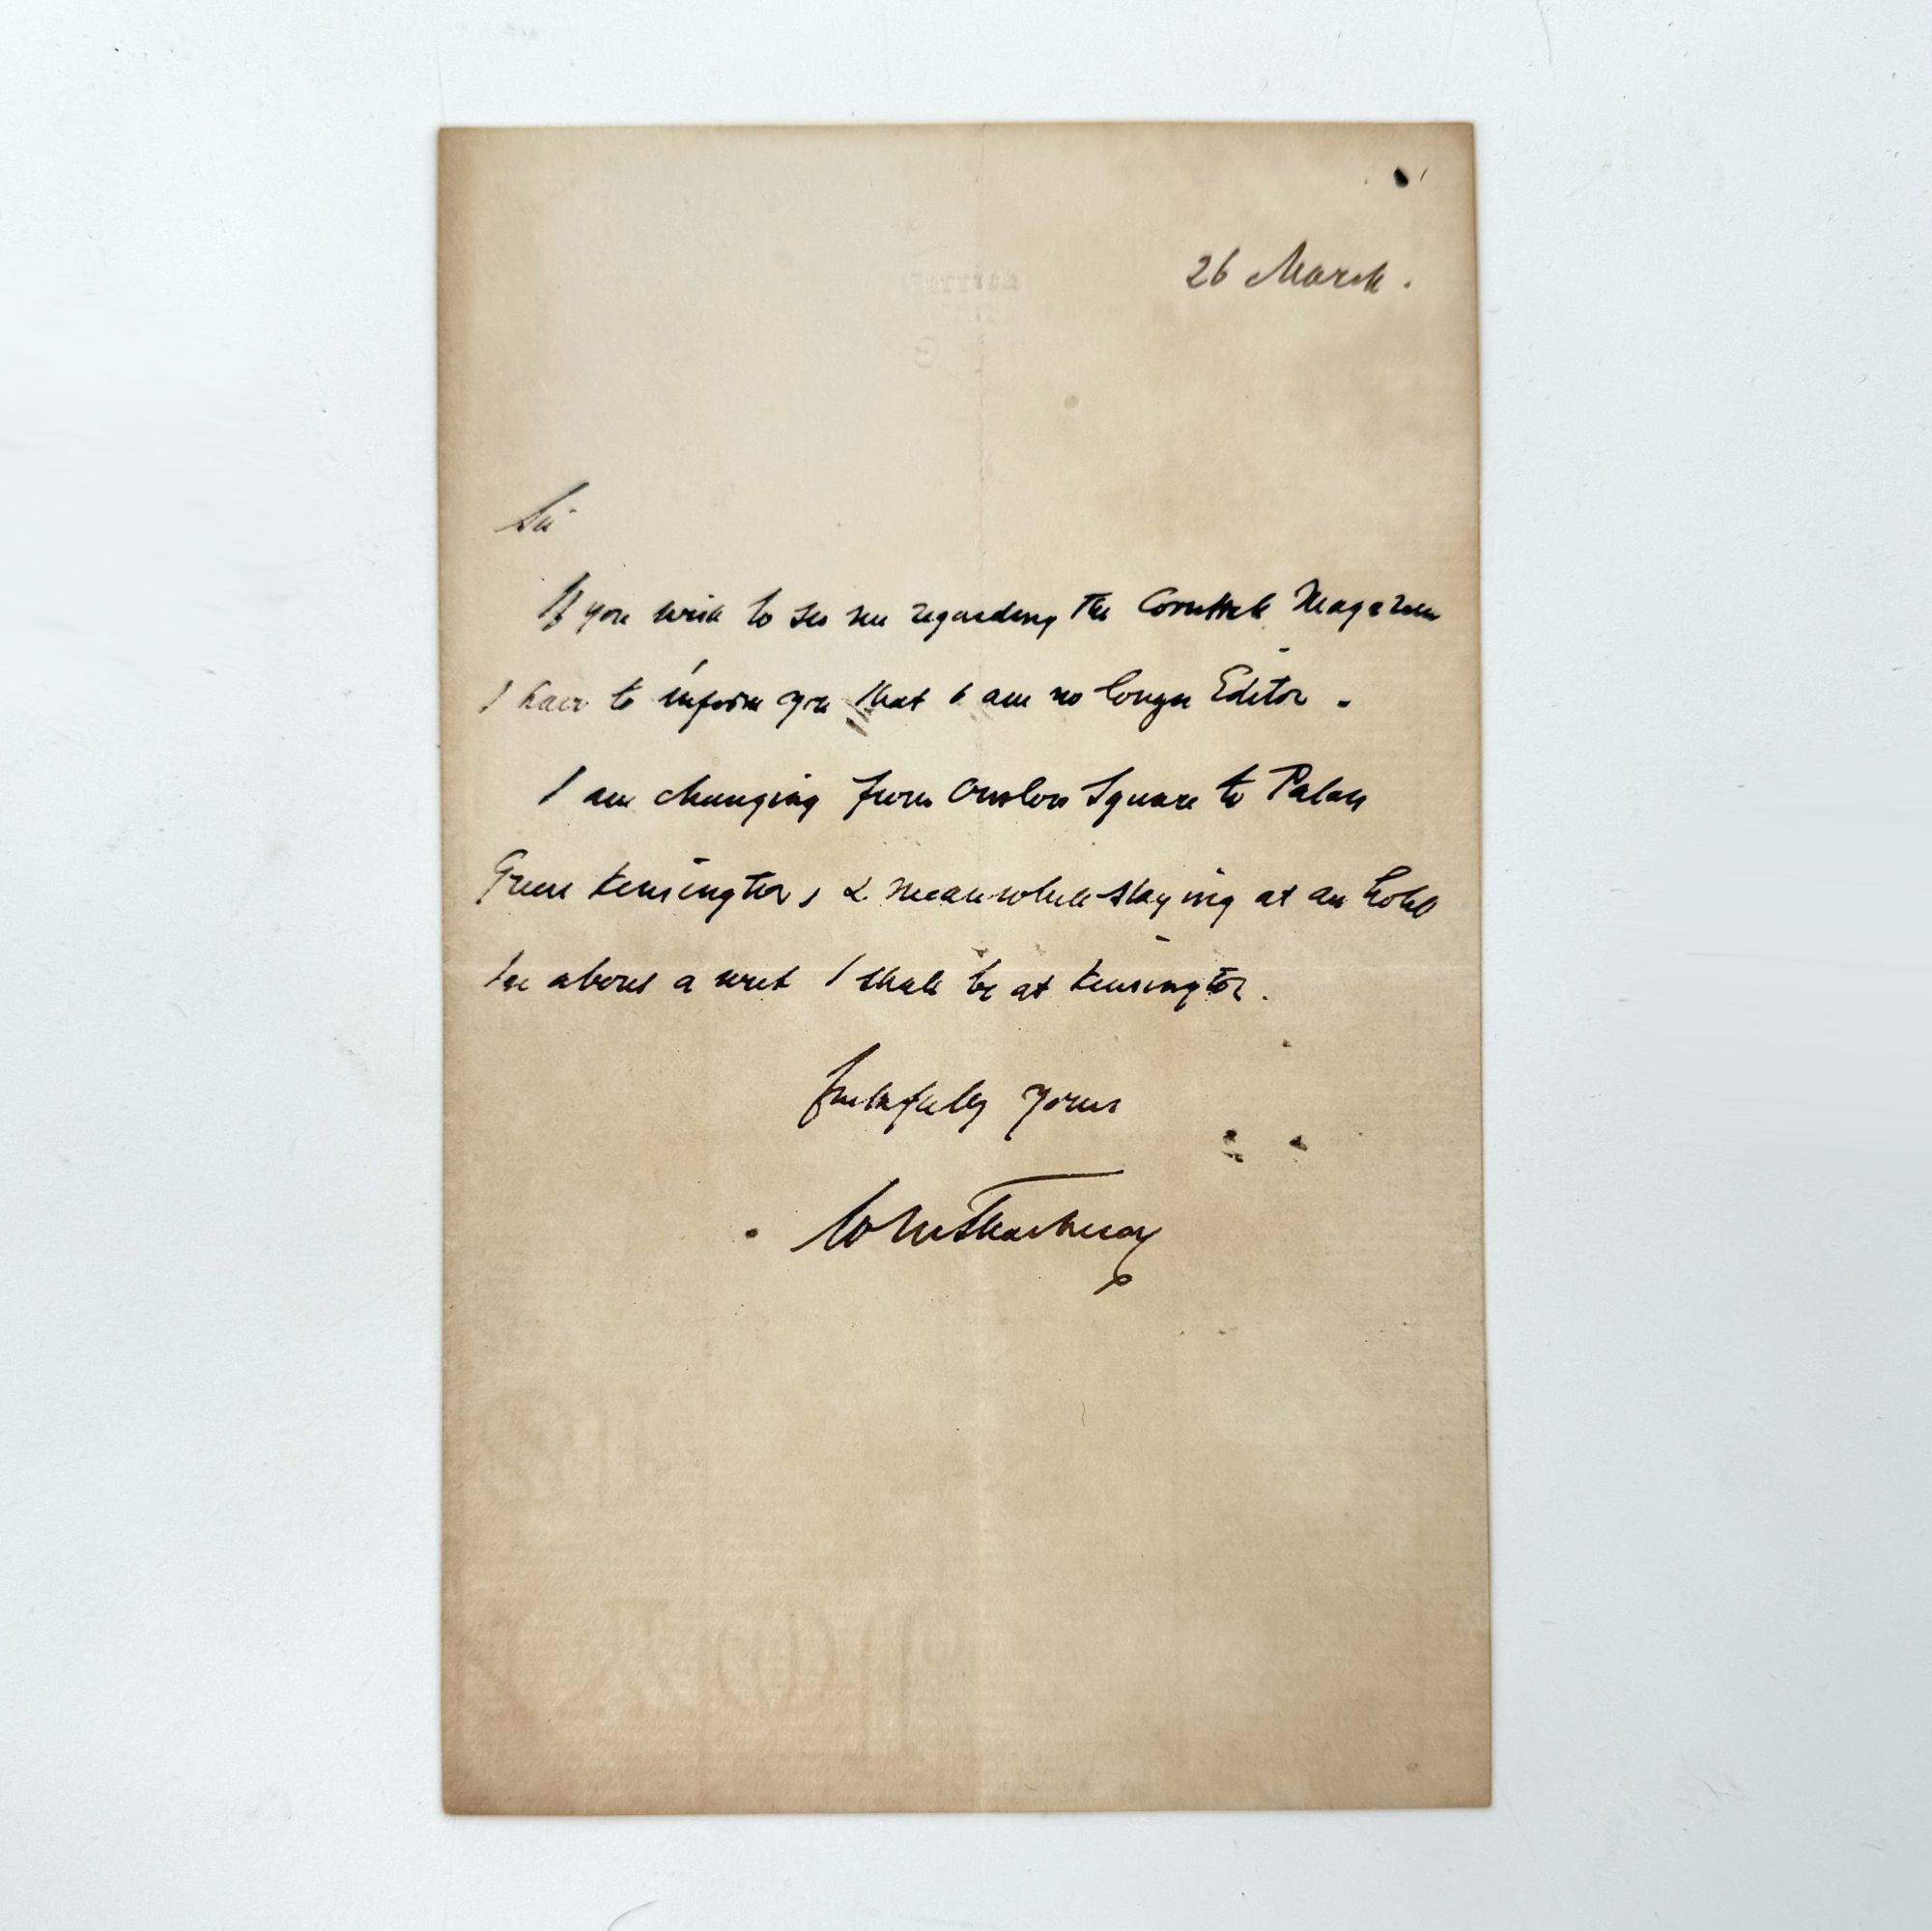 26 March.
Sir
If you wish to see me regarding The Cornhill Magazine
I have to inform you that I am no longer Editor.
I am changing from Onslow Square to Palace
Green Kensington, & meanwhile staying at an hotel
In about a week I shall be at Kensington.
Faithfully yours
WMThackeray